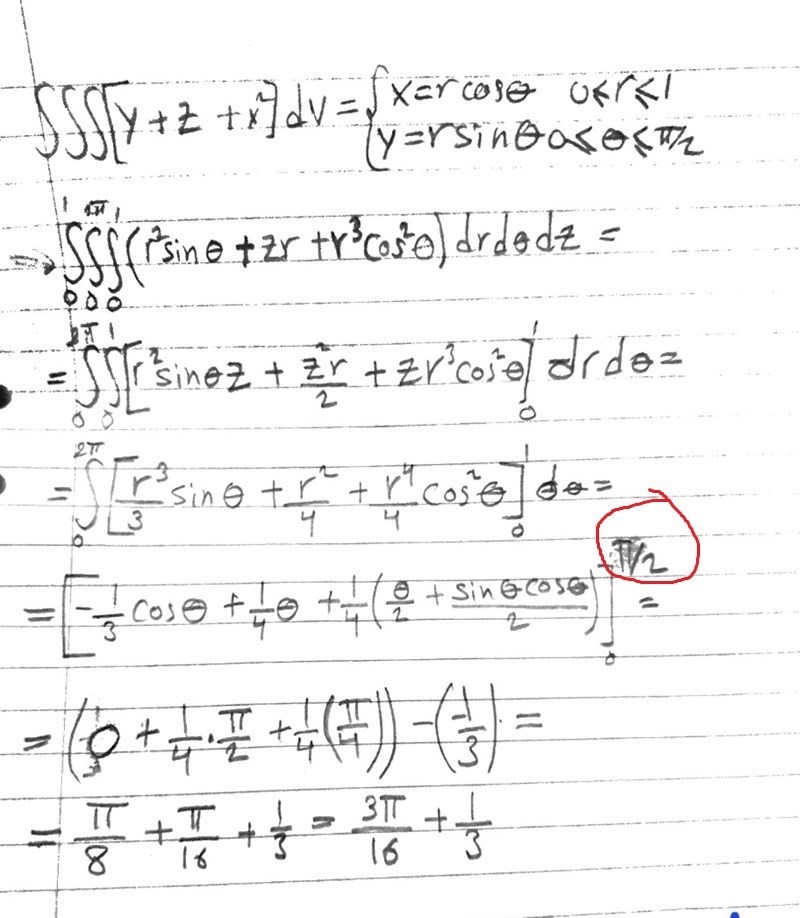 ∭[y + z + x²] dV = { x = r cosθ 0 ≤ r ≤ 1
y = r sinθ 0 ≤ θ ≤ π/2
⇒ ∫₀¹ ∫₀^π ∫₀¹ (r² sinθ + zr + r³ cos²θ) dr dθ dz =
= ∫₀^2π ∫₀¹ [r² sinθ z + z²r/2 + zr³ cos²θ]₀¹ dr dθ =
= ∫₀^2π [r³/3 sinθ + r²/4 + r⁴/4 cos²θ]₀¹ dθ =
= [-1/3 cosθ + 1/4 θ + 1/4 (θ/2 + sinθ cosθ/2)]₀^π/2 =
= (0 + 1/4 · π/2 + 1/4 (π/4)) - (-1/3) =
= π/8 + π/16 + 1/3 = 3π/16 + 1/3